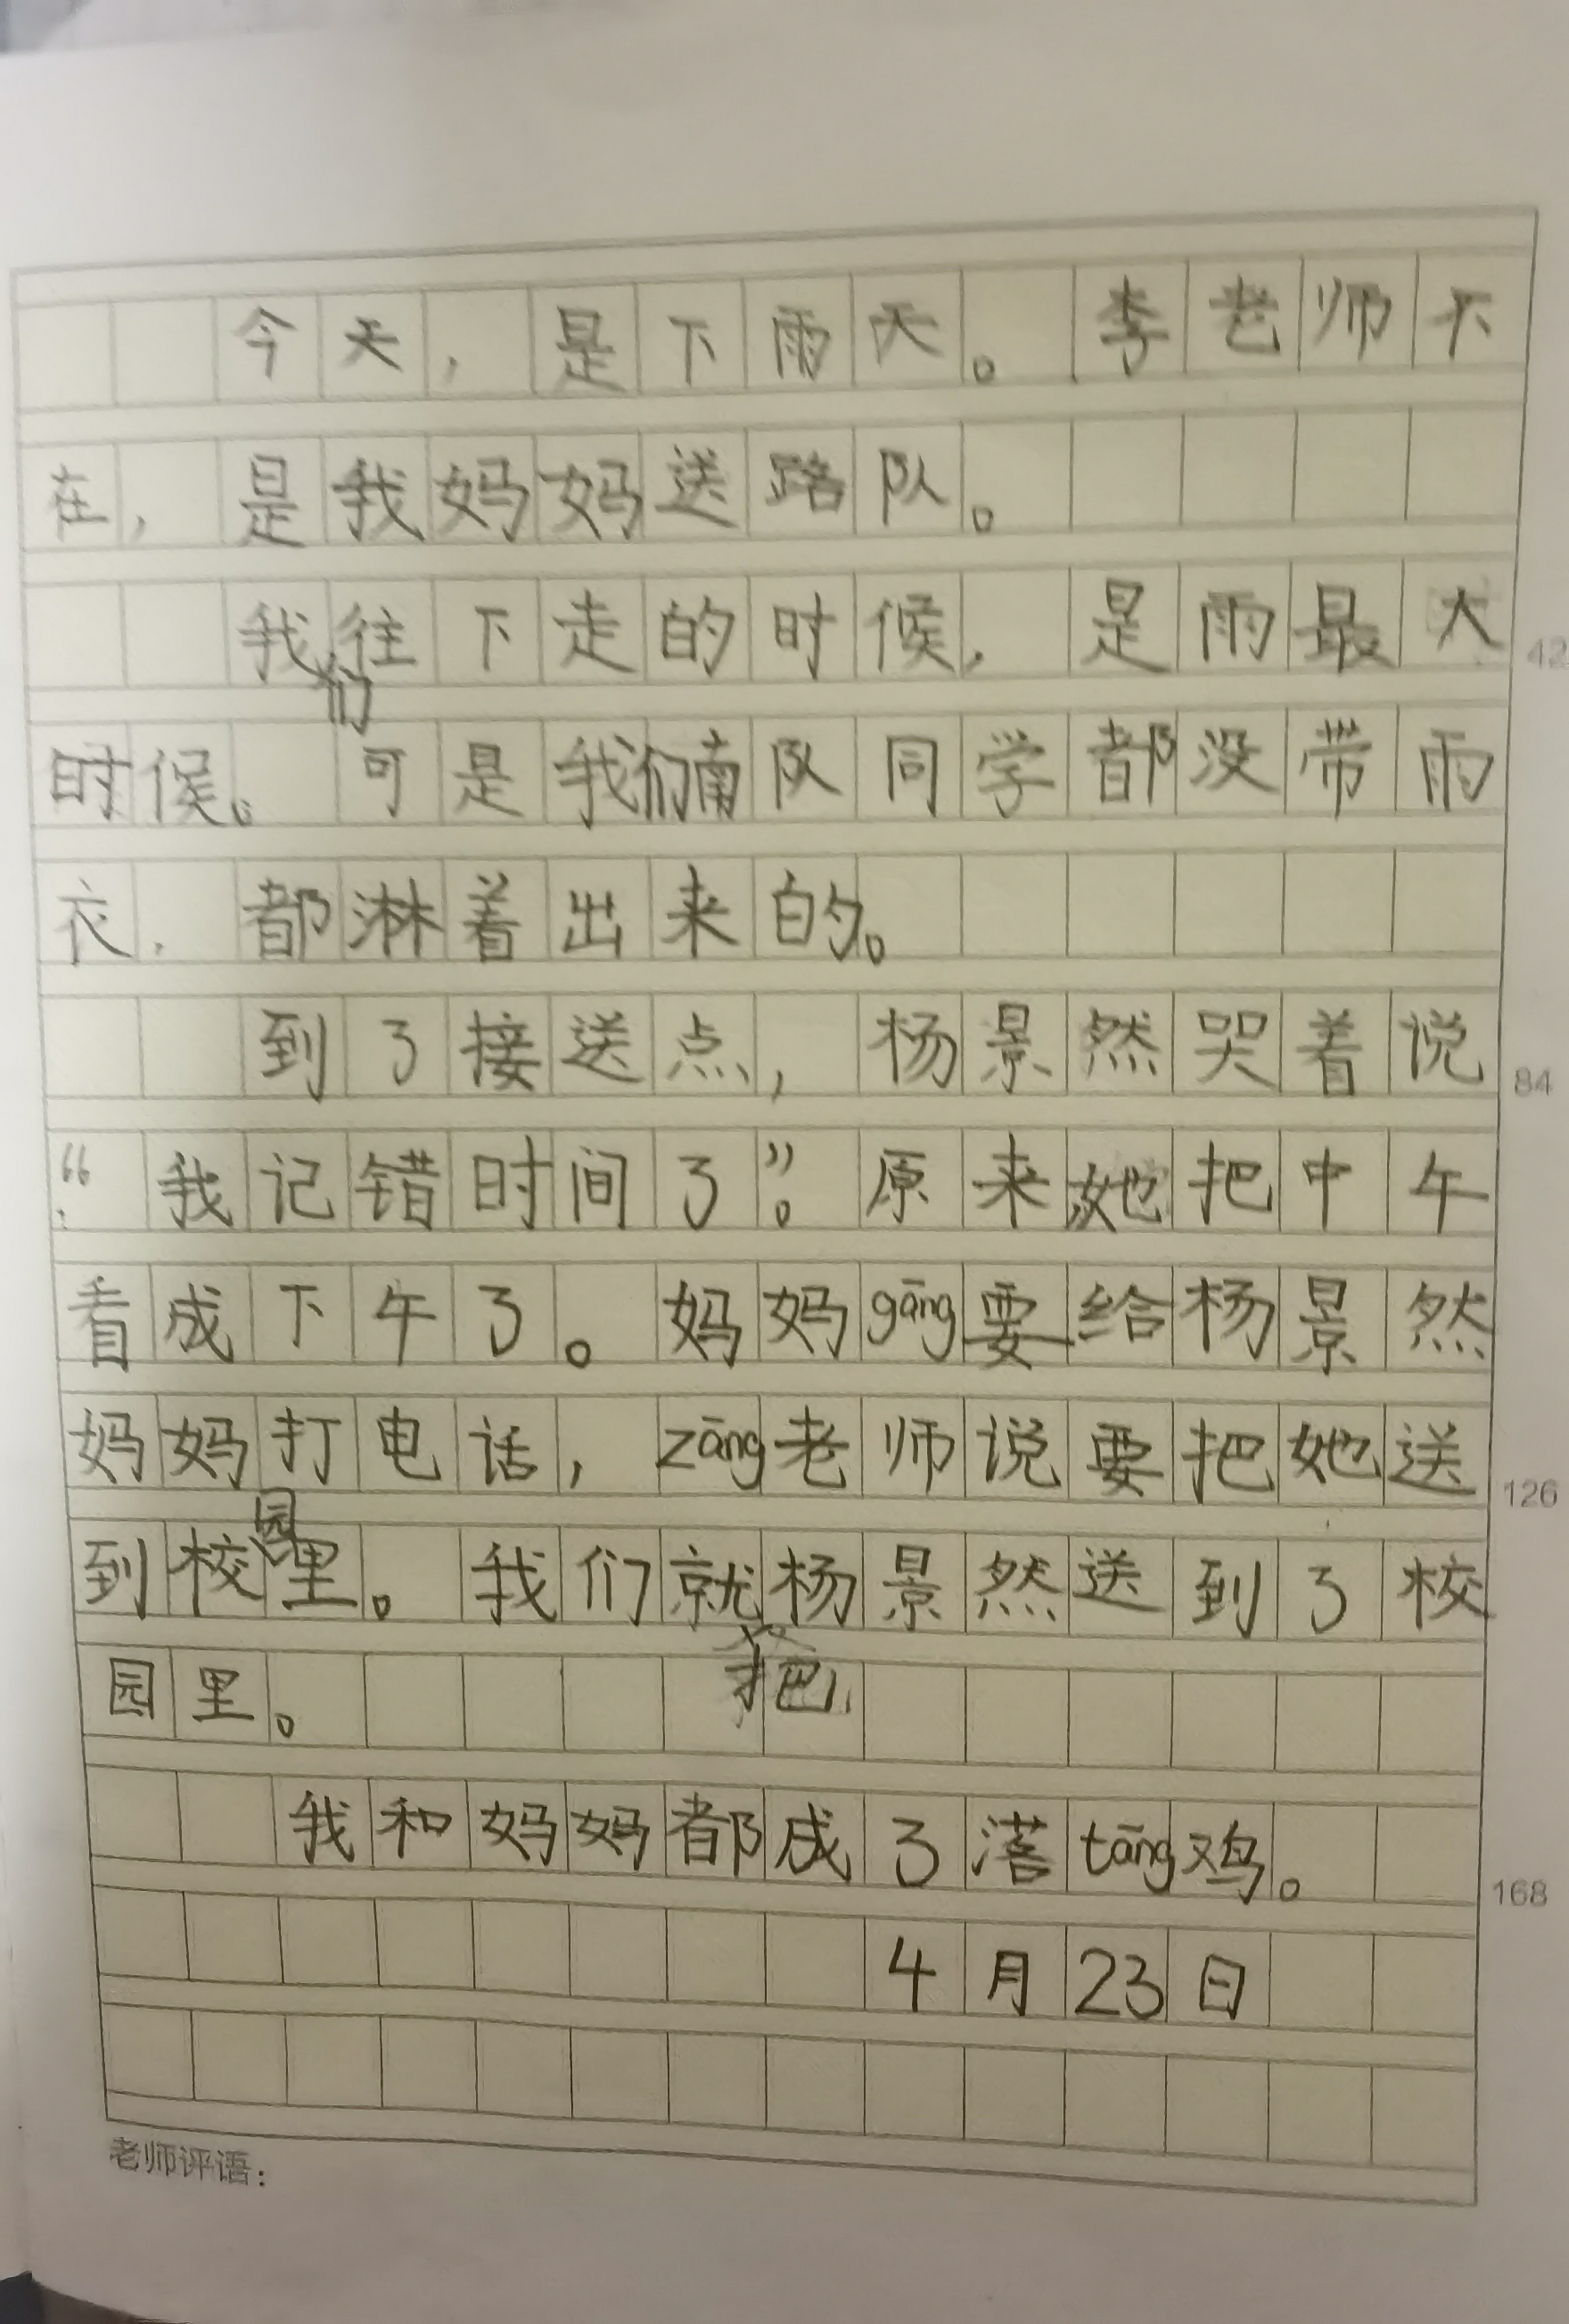 今天，是下雨天。李老师不
在，是我妈妈送路队。
我们往下走的时候，是雨最大
时候。可是我们南队同学都没带雨
衣，都淋着出来的。
到了接送点，杨景然哭着说
：“我记错时间了”。原来她把中午
看成下午了。妈妈gāng要给杨景然
妈妈打电话，zāng老师说要把她送
到校园里。我们就把杨景然送到了校
园里。
我和妈妈都成了落tāng鸡。
4月23日
老师评语：
42
84
126
168